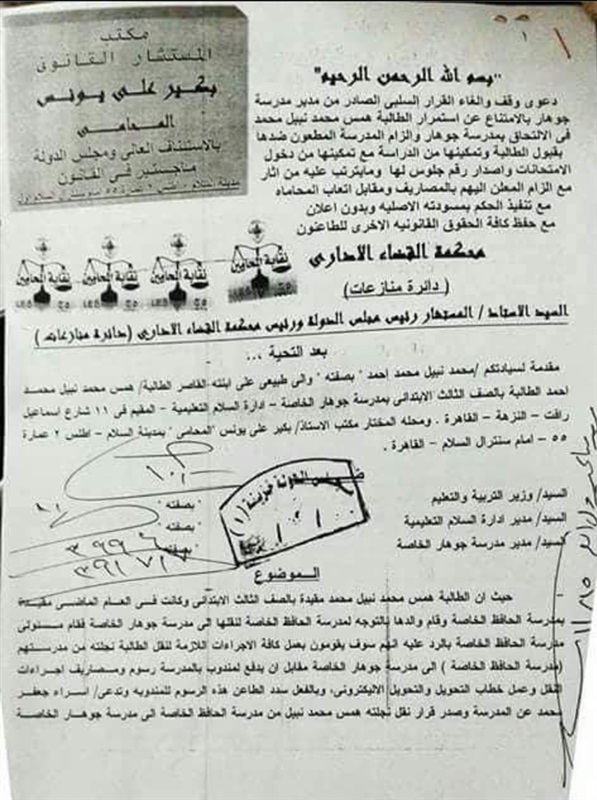 مكتب
المستشار القانونى
بكير على يونس
المحامى
بالاستئناف العالى ومجلس الدولة
ماجستير فى القانون
"بسم الله الرحمن الرحيم"
دعوى وقف والغاء القرار السلبى الصادر من مدير مدرسة
جوهار بالامتناع عن استمرار الطالبة همس محمد نبيل محمد
فى الالتحاق بمدرسة جوهار والزام المدرسة المطعون ضدها
بقبول الطالبة وتمكينها من الدراسة مع تمكينها من دخول
الامتحانات واصدار رقم جلوس لها ومايترتب عليه من اثار
مع الزام المعلن اليهم بالمصاريف ومقابل اتعاب المحاماه
مع تنفيذ الحكم بمسودته الاصليه وبدون اعلان
مع حفظ كافة الحقوق القانونيه الاخرى للطاعنون
نقابة المحامين
نقابة المحامين
نقابة المحامين
نقابة المحامين
محكمة القضاء الادارى
( دائرة منازعات )
السيد الاستاذ / المستشار رئيس مجلس الدولة ورئيس محكمة القضاء الادارى (دائرة منازعات )
بعد التحية ...
مقدمة لسيادتكم /محمد نبيل محمد احمد "بصفته" والى طبيعى على ابنته القاصر الطالبة/ همس محمد نبيل محمد
احمد الطالبة بالصف الثالث الابتدائى بمدرسة جوهار الخاصة – ادارة السلام التعليمية – المقيم فى ١١ شارع اسماعيل
رافت – النزهة – القاهرة . ومحله المختار مكتب الاستاذ/ بكير على يونس "المحامى" بمدينة السلام – اطلس ٢ عمارة
٥٥ – امام سنترال السلام – القاهرة .
ضـد
مجلس الدولة خزينة (١)
السيد/ وزير التربية والتعليم " بصفته "
السيد/ مدير ادارة السلام التعليمية " بصفته "
السيد/ مدير مدرسة جوهار الخاصة " بصفته "
الموضوع
حيث ان الطالبة همس محمد نبيل محمد مقيدة بالصف الثالث الابتدائى وكانت فى العام الماضى مقيدة
بمدرسة الحافظ الخاصة وقام والدها بالتوجه لمدرسة الحافظ الخاصة لنقلها الى مدرسة جوهار الخاصة فقام مسئولى
مدرسة الحافظ الخاصة بالرد عليه انهم سوف يقومون بعمل كافة الاجراءات اللازمة لنقل الطالبة نجلته من مدرستهم
(مدرسة الحافظ الخاصة ) الى مدرسة جوهار الخاصة مقابل ان يدفع لمندوب بالمدرسة رسوم ومصاريف اجراءات
النقل وعمل خطاب التحويل والتحويل الاليكترونى، وبالفعل سدد الطاعن هذه الرسوم للمندوبه وتدعى/ اسراء جعفر
محمد عن المدرسة وصدر قرار نقل نجلته همس محمد نبيل من مدرسة الحافظ الخاصة الى مدرسة جوهار الخاصة